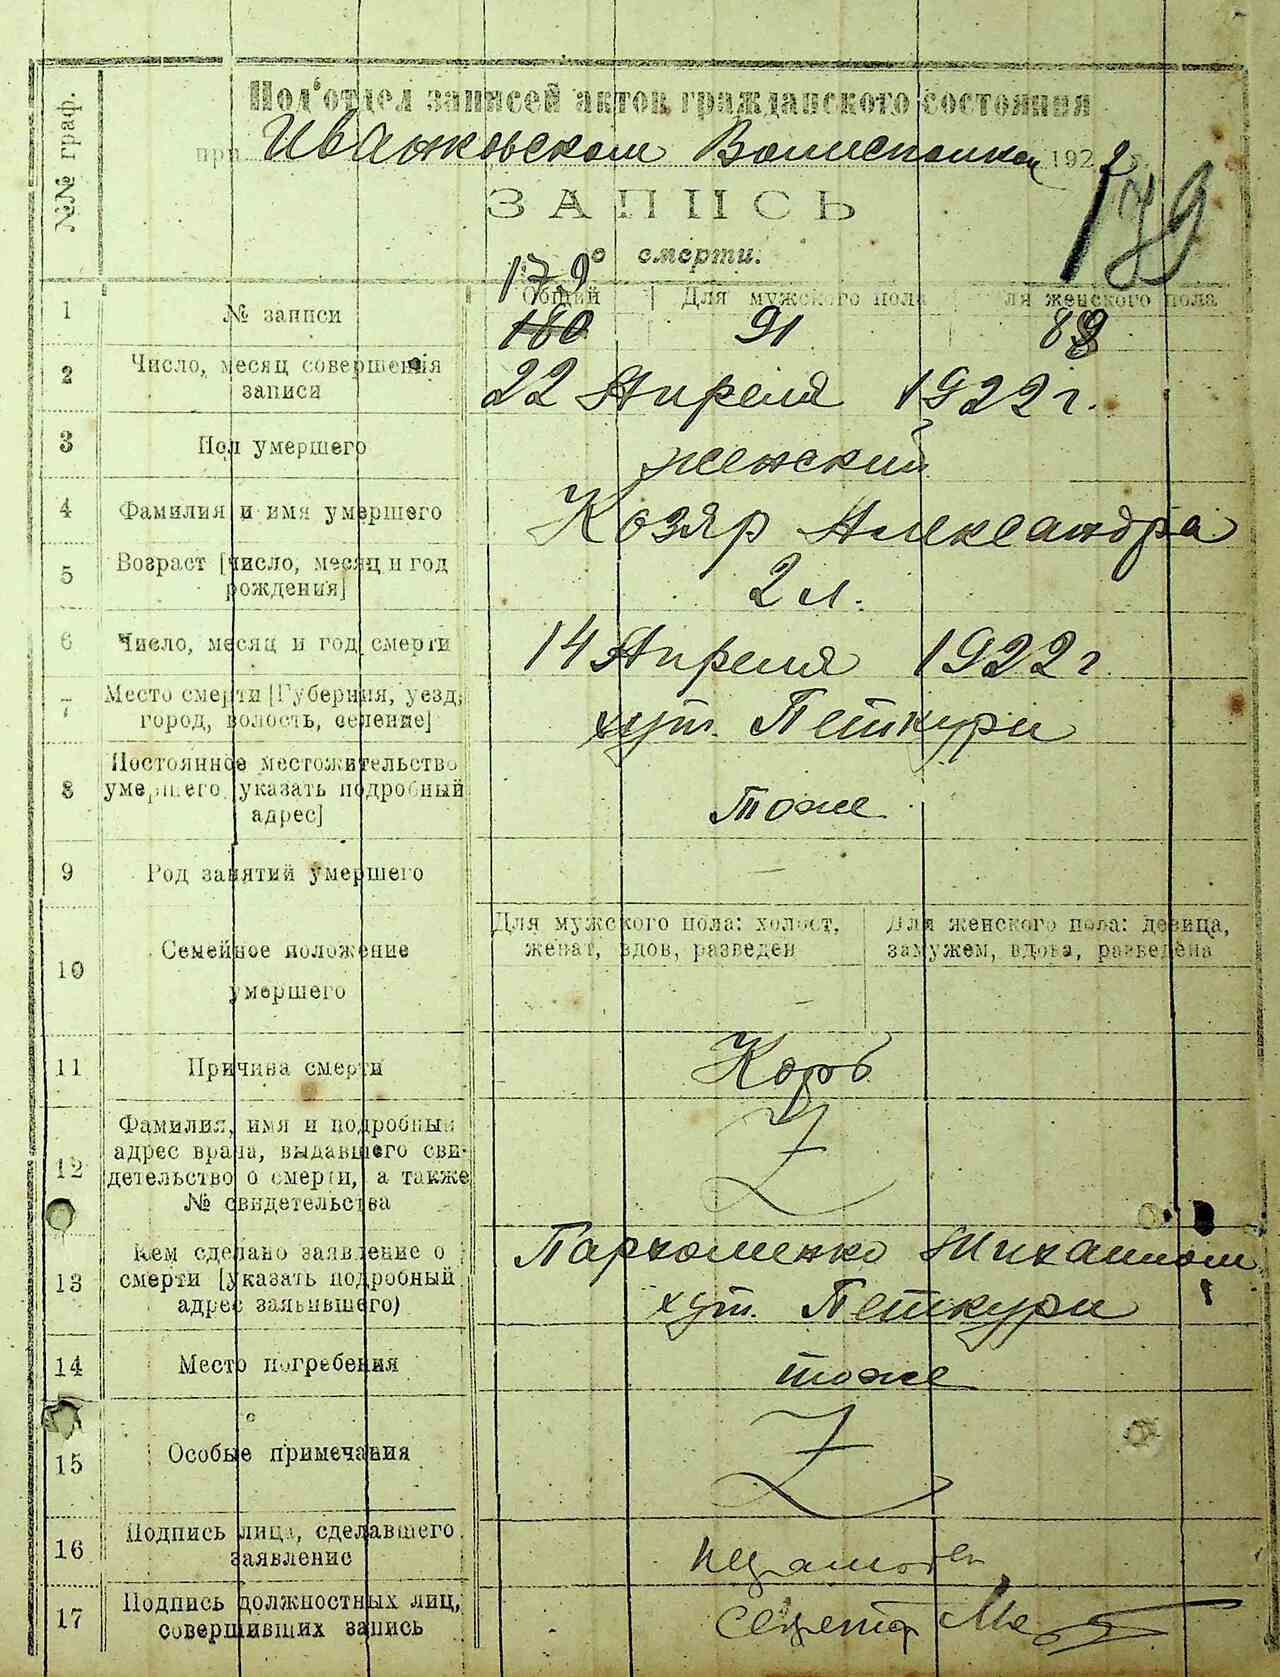 №№ граф.
Под'отдел записей актов гражданского состояния
при Иванковском Волисполкоме 1922 г.
179
ЗАПИСЬ
о смерти.
179
Общий Для мужского пола Для женского пола
1 № записи 180 91 89
2 Число, месяц совершения
записи
22 Апреля 1922 г.
3 Пол умершего женский
4 Фамилия и имя умершего Козяр Александра
5 Возраст [число, месяц и год
рождения]
2 л.
6 Число, месяц и год смерти 14 Апреля 1922 г
7 Место смерти [Губерния, уезд,
город, волость, селение]
хут. Петкури
8 Постоянное местожительство
умершего [указать подробный
адрес]
тоже
9 Род занятий умершего —
Для мужского пола: холост,
женат, вдов, разведен
Для женского пола: девица,
замужем, вдова, разведена
10 Семейное положение
умершего
—
11 Причина смерти Корь
12 Фамилия, имя и подробный
адрес врача, выдавшего сви-
детельство о смерти, а также
№ свидетельства
Z
13 Кем сделано заявление о
смерти [указать подробный
адрес заявившего)
Пархоменко Михаилом
хут. Петкури
14 Место погребения тоже
15 Особые примечания Z
16 Подпись лица, сделавшего
заявление
17 Подпись должностных лиц,
совершивших запись
Секретар